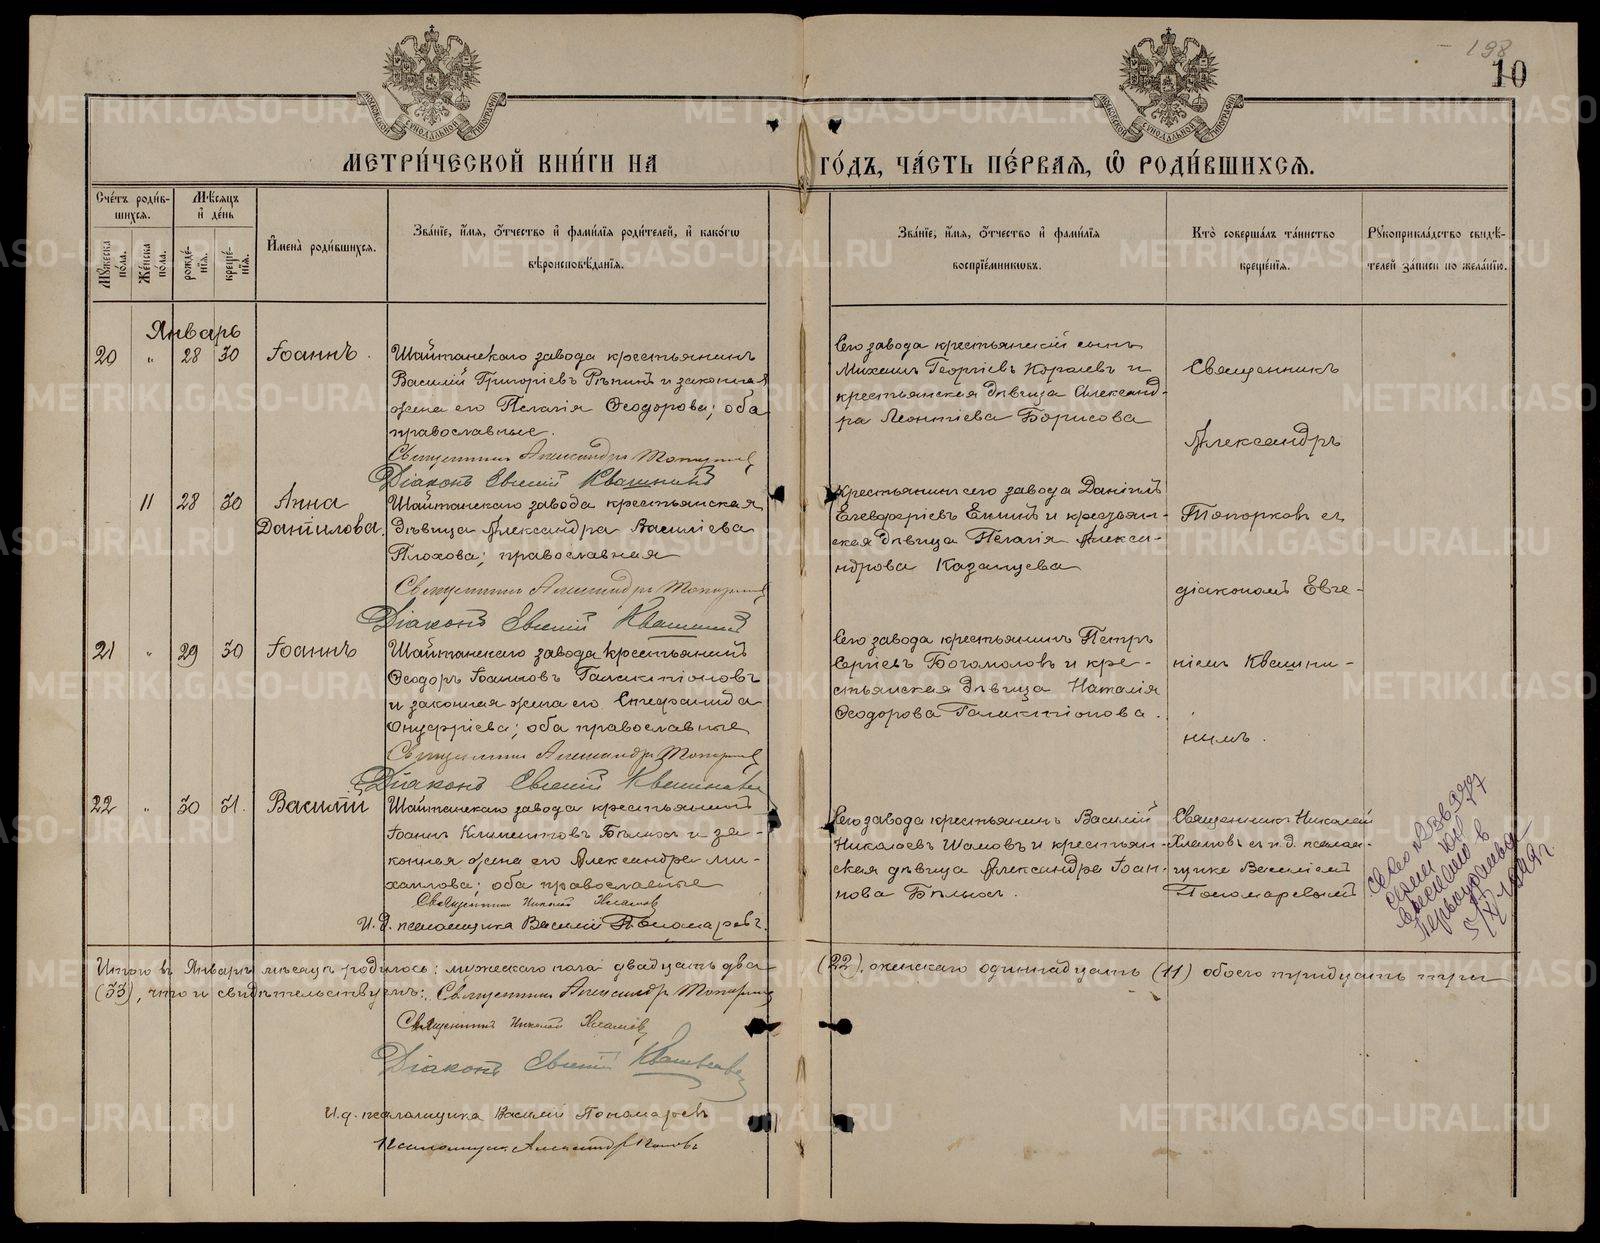 198
10
МЕТРИ́ЧЕСКОЙ КНИ́ГИ НА ГО́ДЪ, ЧА́СТЬ ПЕ́РВАЯ, Ѡ҆ РОДИ́ВШИХСЯ.
Сче́тъ роди́в-
шихся.
Мѣ́сяцъ
и҆ де́нь
Му́жеска по́ла.
Же́нска по́ла.
рожде́-
нїѧ.
креще́-
нїѧ.
И҆мена̀ роди́вшихся.
Зва́нїе, и҆́мѧ, ѻ҆́тчество и҆ фами́лїѧ роди́телей, и҆ како́гѡ
вѣроисповѣ́данїѧ.
Зва́нїе, и҆́мѧ, ѻ҆́тчество и҆ фами́лїѧ
воспрїе́мникѡвъ.
Кто̀ соверша́лъ та́инство
креще́нїѧ.
Рꙋкоприкла́дство свидѣ́-
телей за́писи по жела́нїю.
Январь
20 " 28 30 Іоаннъ.
Шайтанскаго завода крестьянинъ
Василій Григоріевъ Рѣпинъ и законная
жена его Пелагія Ѳеодорова; оба
православные.
Священникъ Александръ Топорковъ
Діаконъ Евгеній Квашнинъ
Сего завода крестьянскій сынъ
Михаилъ Георгіевъ Королевъ и
крестьянская дѣвица Александ-
ра Леонтіева Борисова
Священникъ
Александръ
Топорковъ съ
діакономъ Евге-
ніемъ Квашни-
нымъ.
11 28 30 Анна
Даніилова.
Шайтанскаго завода крестьянская
дѣвица Александра Васильева
Плохова; православная
Священникъ Александръ Топорковъ
Діаконъ Евгеній Квашнинъ
Крестьянинъ сего завода Даніилъ
Елевферіевъ Екимъ и крестьян-
ская дѣвица Пелагія Алекса-
ндрова Казанцева
21 " 29 30 Іоаннъ
Шайтанскаго завода крестьянинъ
Ѳеодоръ Іоанновъ Галактіоновъ
и законная жена его Стефанида
Онуфріева; оба православные
Священникъ Александръ Топорковъ
Діаконъ Евгеній Квашнинъ
Сего завода крестьянинъ Петръ
Сергіевъ Богомоловъ и кре-
стьянская дѣвица Наталія
Ѳеодорова Галактіонова.
22 " 30 31. Василій
Шайтанскаго завода крестьянинъ
Іоаннъ Климентовъ Бѣлыхъ и за-
конная жена его Александра Ми-
хаилова; оба православные
Священникъ Николай Хламовъ
И. д. псаломщика Василій Пономаревъ.
Сего завода крестьянинъ Василій
Николаевъ Шамовъ и крестьян-
ская дѣвица Александра Іоан-
нова Бѣлыхъ.
Священникъ Николай
Хламовъ съ и. д. псалом-
щика Василіемъ
Пономаревымъ
5/XI 1949г.
Итого въ Январѣ мѣсяцѣ родилось: мужескаго пола двадцать два (22), женскаго одиннадцать (11) обоего тридцать три
(33), что и свидѣтельствуемъ: Священникъ Александръ Топорковъ
Священникъ Николай Хламовъ
Діаконъ Евгеній Квашнинъ
И. д. псаломщика Василій Пономаревъ
Псаломщикъ Александръ Поповъ
METRIKI.GASO-URAL.RU